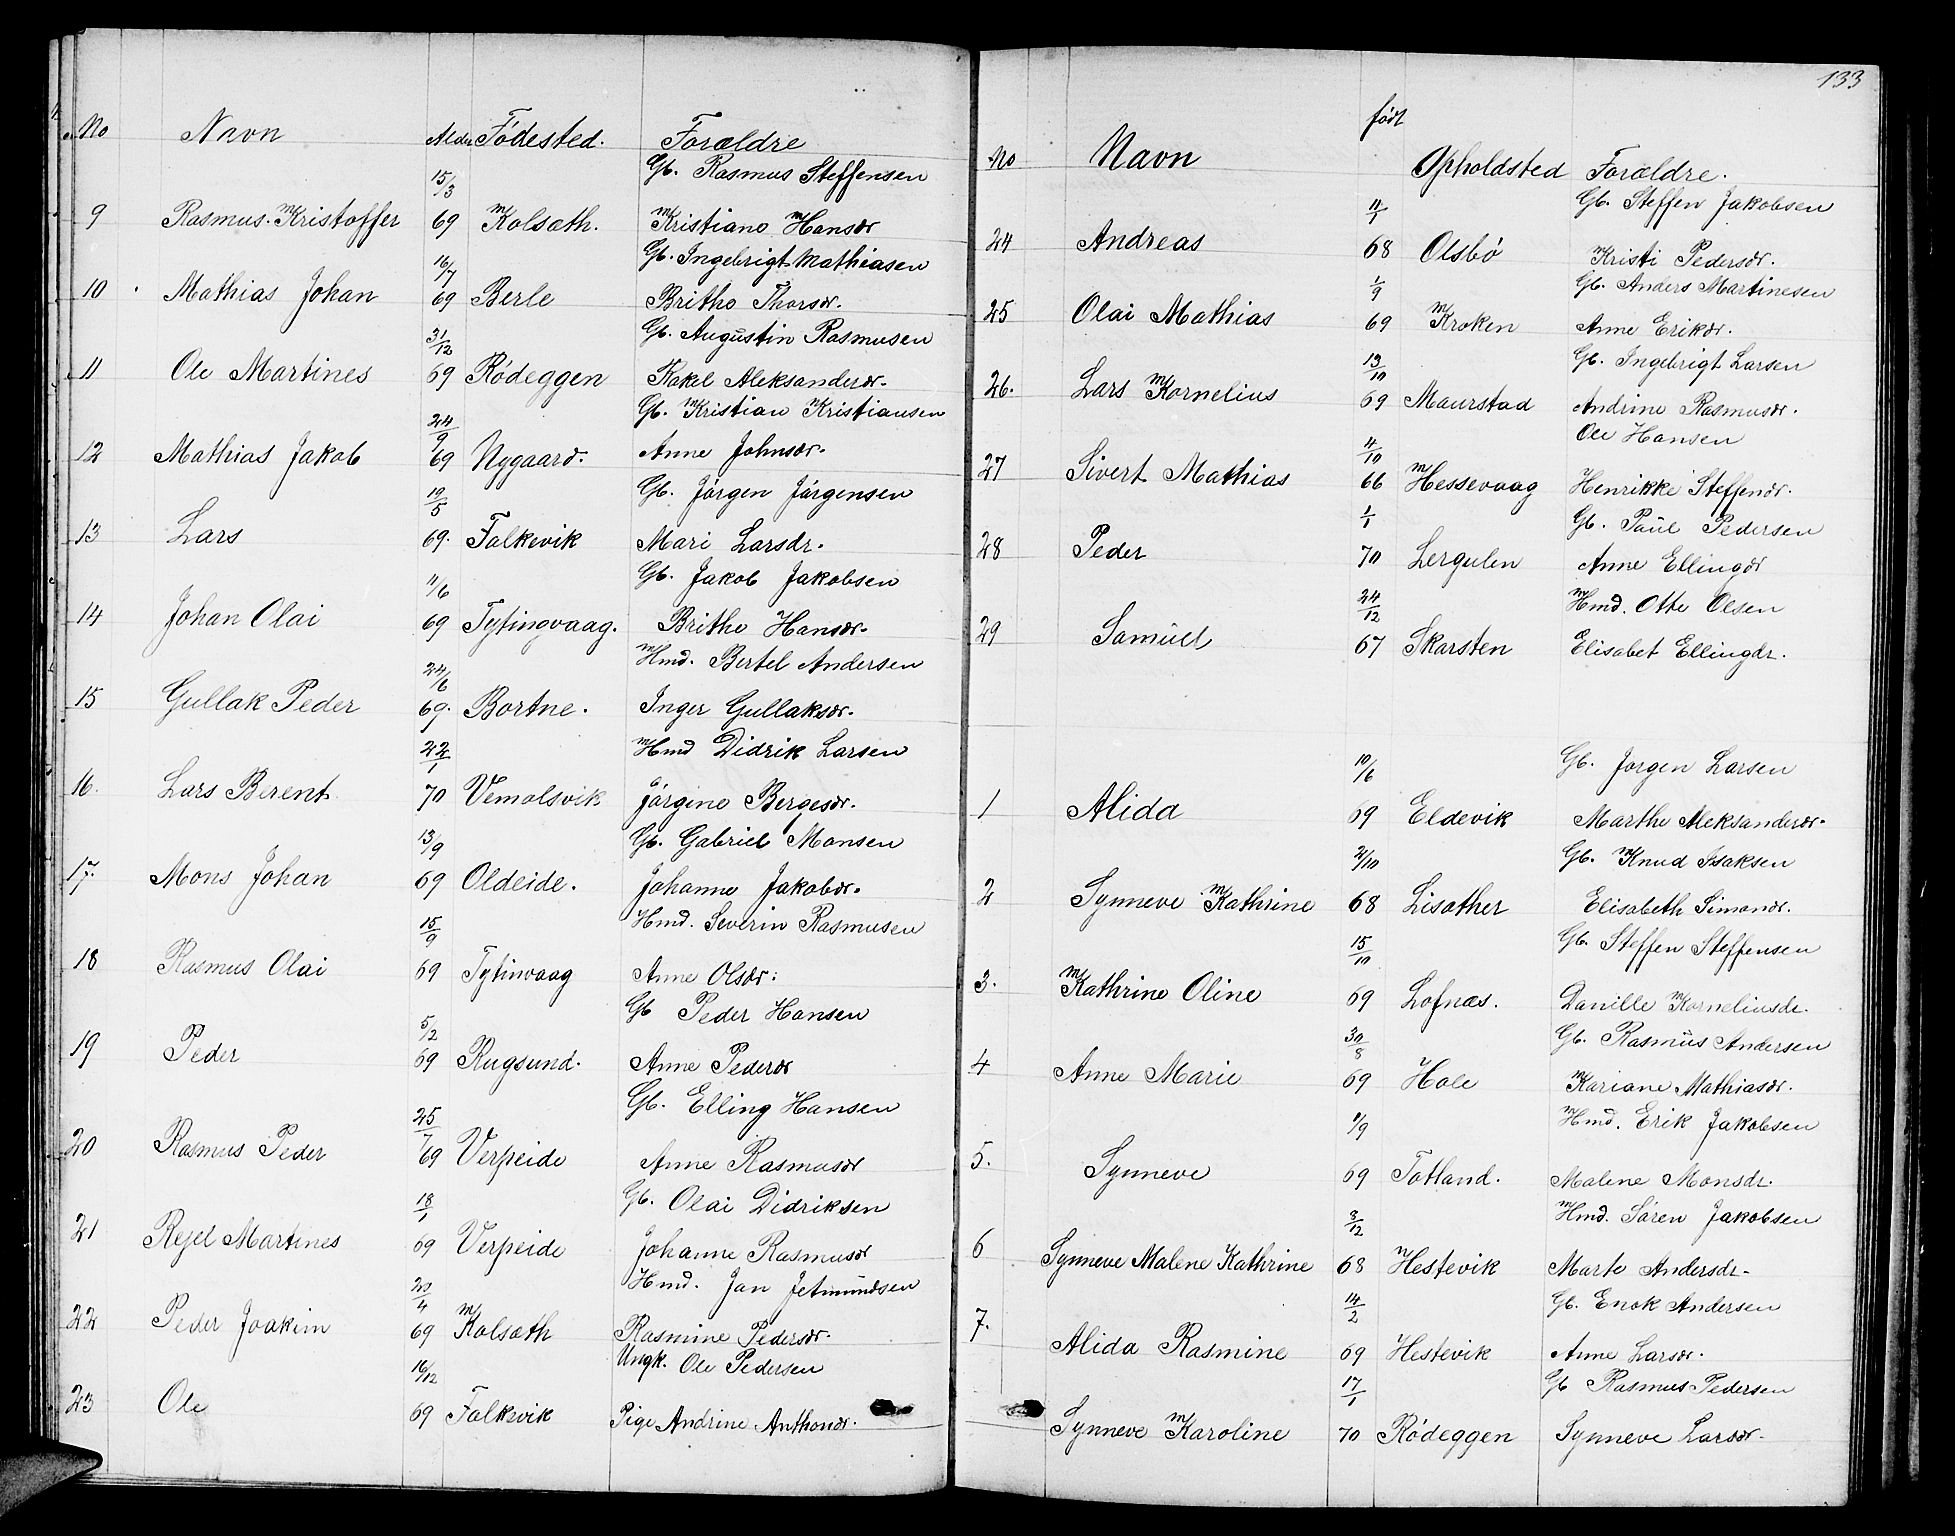 No Navn Alder Födested. Forældre
15/3 Gb. Rasmus Steffensen
9 Rasmus. Kristoffer 69 Kolsæth. Kristiane Hansdr
16/7 Gb. Ingebrigt Mathiasen
10 Mathias Johan 69 Berle Brithe Thorsdr.
31/12 Gb. Augustin Rasmusen
11 Ole Martines 69 Rödeggen Rakel Aleksanderdr.
24/9 Gb. Kristian Kristiansen
12 Mathias Jakob 69 Nygaard. Anne Johnsdr.
19/5 Gb. Jörgen Jörgensen
13 Lars 69. Falkevik Mari Larsdr.
11/6 Gb. Jakob Jakobsen
14 Johan Olai 69 Tytingvaag. Brithe Hansdr.
24/6 Hmd. Bertel Andersen
15 Gullak Peder 69. Bortne. Inger Gullaksdr.
22/1 Hmd Didrik Larsen
16. Lars Berent 70 Vemolsvik Jörgine Bergesdr.
13/9 Gb. Gabriel Monsen
17. Mons Johan 69 Oldeide. Johanne Jakobdr.
15/9 Hmd. Severin Rasmusen
18 Rasmus Olai 69 Tytinvaag Anne Olsdr:
5/2 Gb Peder Hansen
19 Peder 69 Rugsund. Anne Pederdr
25/7 Gb. Elling Hansen
20 Rasmus Peder 69 Verpeide Anne Rasmusdr
18/1 Gb. Olai Didriksen
21 Rejel Martines 69 Verpeide Johanne Rasmusdr
20/4 Hmd. Jan Jetmundsen
22 Peder Joakim 69 Kolsæth Rasmine Pedersdr.
16/12 Ungk. Ole Pedersen
23 Ole 69 Falkevik Pige Andrine Anthondr.
133
No Navn födt Opholdsted Forældre.
11/1 Gb. Steffen Jakobsen
24 Andreas 68 Olsbö Kristi Pedersdr.
1/9 Gb. Anders Martinesen
25 Olai Mathias 69 Kroken Anne Erikdr.
13/10 Gb. Ingebrigt Larsen
26. Lars Kornelius 69 Maurstad Andrine Rasmusdr.
4/10 Ole Hansen
27 Sivert Mathias 66 Hessevaag Henrikke Steffendr.
1/1 Gb. Paul Pedersen
28 Peder 70 Lergulen Anne Ellingdr
24/12 Hmd. Otte Olsen
29 Samuel 67 Skarsten Elisabet Ellingdr.
10/6 Gb. Jorgen Larsen
1 Alida 69 Eldevik Marthe Aleksanderdr.
21/10 Gb. Knud Isaksen
2 Synneve Kathrine 68 Lisæther Elisabeth Simondr.
15/10 Gb. Steffen Steffensen
3. Kathrine Oline 69 Lofnæs. Danille Korneliusdr.
30/8 Gb. Rasmus Andersen
4 Anne Marie 69 Hole Kariane Mathiasdr.
9/9 Hmd. Erik Jakobsen
5. Synneve 69 Totland. Malene Monsdr.
3/12 Hmd. Sören Jakobsen
6 Synneve Malene Kathrine 68 Hestevik Marte Andersdr.
14/2 Gb. Enok Andersen
7. Alida Rasmine 69 Hestevik Anne Larsdr.
17/1 Gb Rasmus Pedersen
Synneve Karoline 70 Rödeggen Synneve Larsdr.